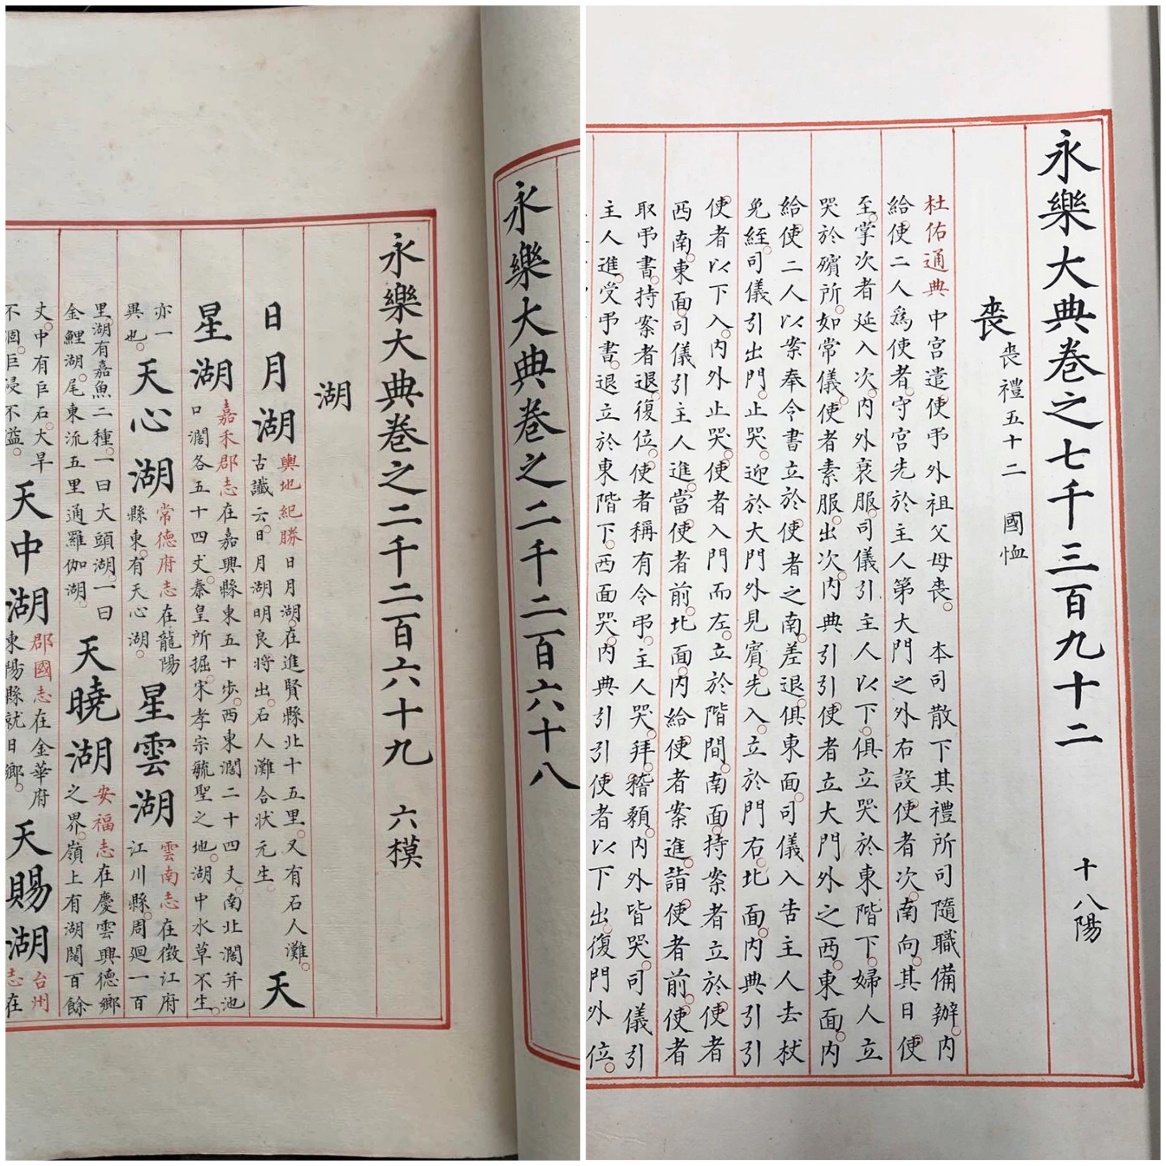 永樂大典卷之二千二百六十八
永樂大典卷之二千二百六十九 六模
湖
日月湖 輿地紀勝日月湖。在進賢縣北十五里。又有石人灘。古讖云。日月湖明良將出。石人灘合狀元生。 天
星湖 嘉禾郡志在嘉興縣東五十步。西東濶二十四丈。南北濶并池口濶各五十四丈。秦皇所掘。宋孝宗毓聖之地。湖中水草不生。
亦一異也。 天心湖 常德府志在龍陽縣東。有天心湖。 星雲湖 雲南志在徵江府江川縣。周廻一百
里。湖有嘉魚二種。一曰大頭湖。一曰金鯉湖。尾東流五里通羅伽湖。 天曉湖 安福志在慶雲興德鄉之界。嶺上有湖闊百餘
丈。中有巨石。大旱不涸。巨浸不益。 天中湖 郡國志在金華府東陽縣就日鄉。 天賜湖 台州志在
永樂大典卷之七千三百九十二 十八陽
喪 喪禮五十二 國恤
杜佑通典中宮遣使弔外祖父母喪。 本司散下其禮所司隨職備辦。內
給使二人爲使者。守宮先於主人第大門之外右設使者次。南向。其日使
至。掌次者延入次。內外衰服。司儀引主人以下。俱立哭於東階下。婦人立
哭於殯所。如常儀。使者素服。出次。內典引引使者立大門外之西。東面。內
給使二人以案奉令書立於使者之南。差退。俱東面。司儀入告主人去杖
免絰。司儀引出門。止哭。迎於大門外見賓。先入。立於門右。北面。內典引引
使者以下入。內外止哭。使者入門而左。立於階間。南面。持案者立於使者
西南。東面。司儀引主人進。當使者前。北面。內給使者案進。詣使者前。使者
取弔書。持案者退。復位。使者稱有令弔。主人哭。拜。稽顙。內外皆哭。司儀引
主人進。受弔書。退立於東階下。西面哭。內典引引使者以下出。復門外位。